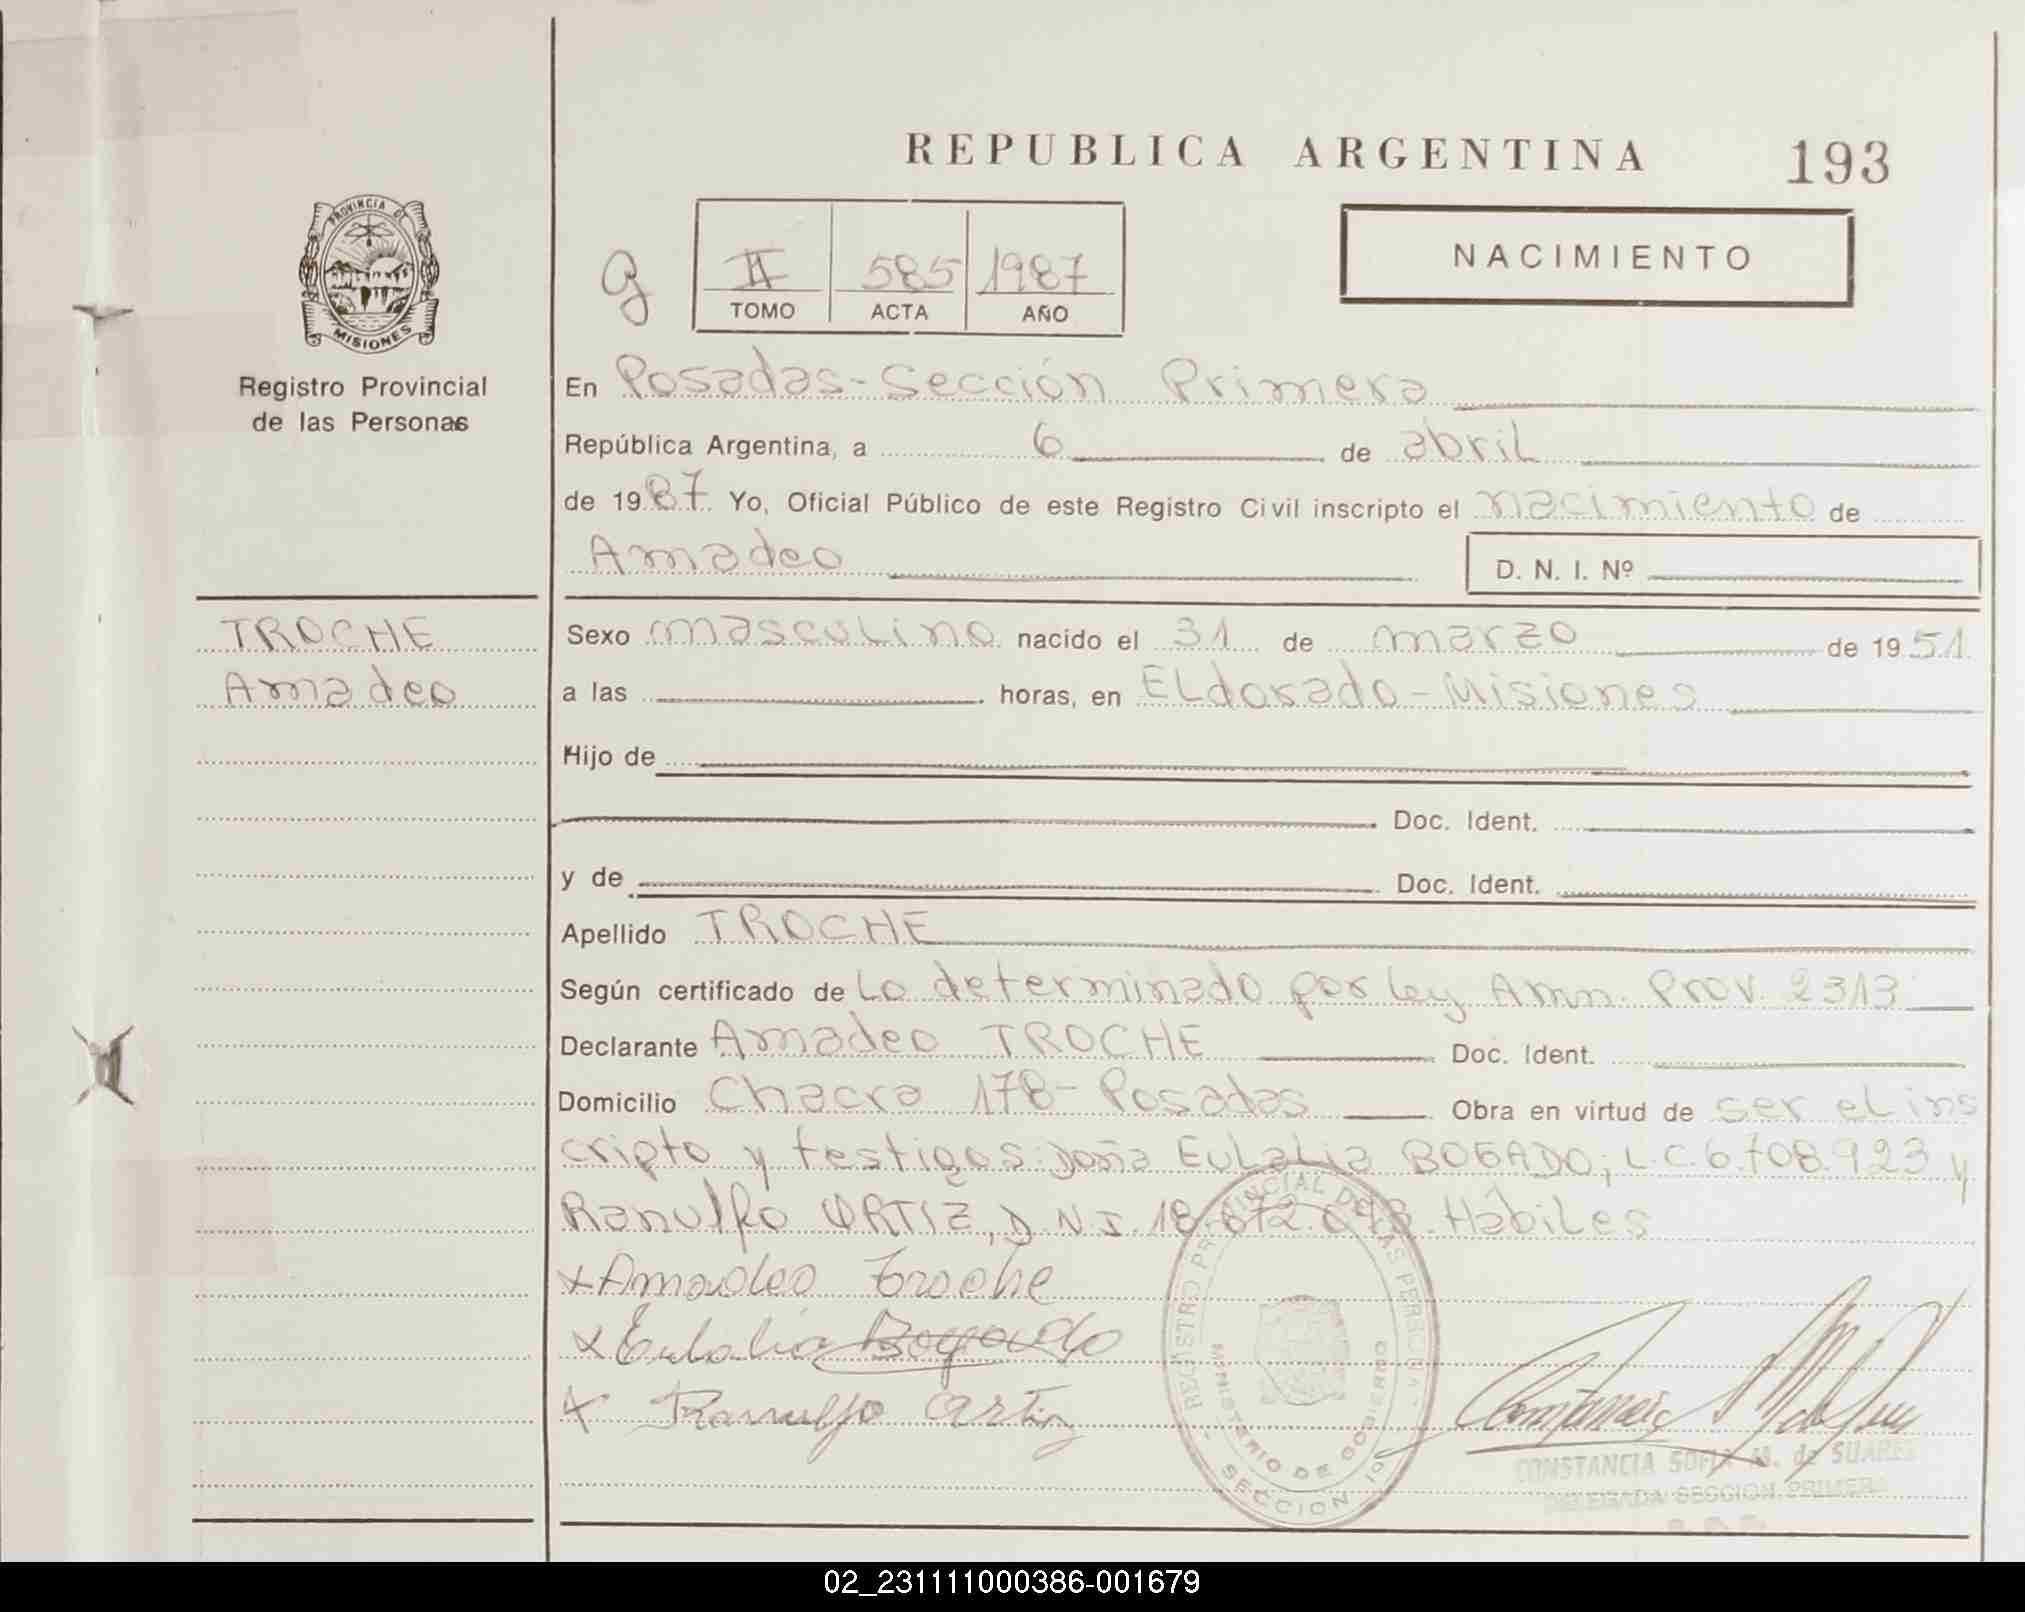 REPUBLICA ARGENTINA 193
PROVINCIA DE
MISIONES
Registro Provincial
de las Personas
II 585 1987
TOMO ACTA AÑO
NACIMIENTO
En Posadas-Sección Primera
República Argentina, a 6 de abril
de 1987 Yo, Oficial Público de este Registro Civil inscripto el nacimiento de
Amadeo
D. N. I. Nº
TROCHE
Amadeo
Sexo masculino nacido el 31 de marzo de 1951
a las horas, en ELdorado-Misiones
Hijo de
Doc. Ident.
y de Doc. Ident.
Apellido TROCHE
Según certificado de Lo determinado por Ley Amn. Prov. 2313
Declarante Amadeo TROCHE Doc. Ident.
Domicilio Chacra 178-Posadas Obra en virtud de ser el ins
cripto y testigos: Doña EuLaLia BOGADO, L.C. 6.708.923 y
Ranulfo ORTIZ, D.N.I. Hábiles
x Amadeo Troche
x Eulalia Bogado
x Ranulfo Ortiz
REGISTRO PROVINCIAL DE LAS PERSONAS
MINISTERIO DE GOBIERNO
SECCION
CONSTANCIA SOFIA M. de SUAREZ
DELEGADA SECCION PRIMERA
02_231111000386-001679